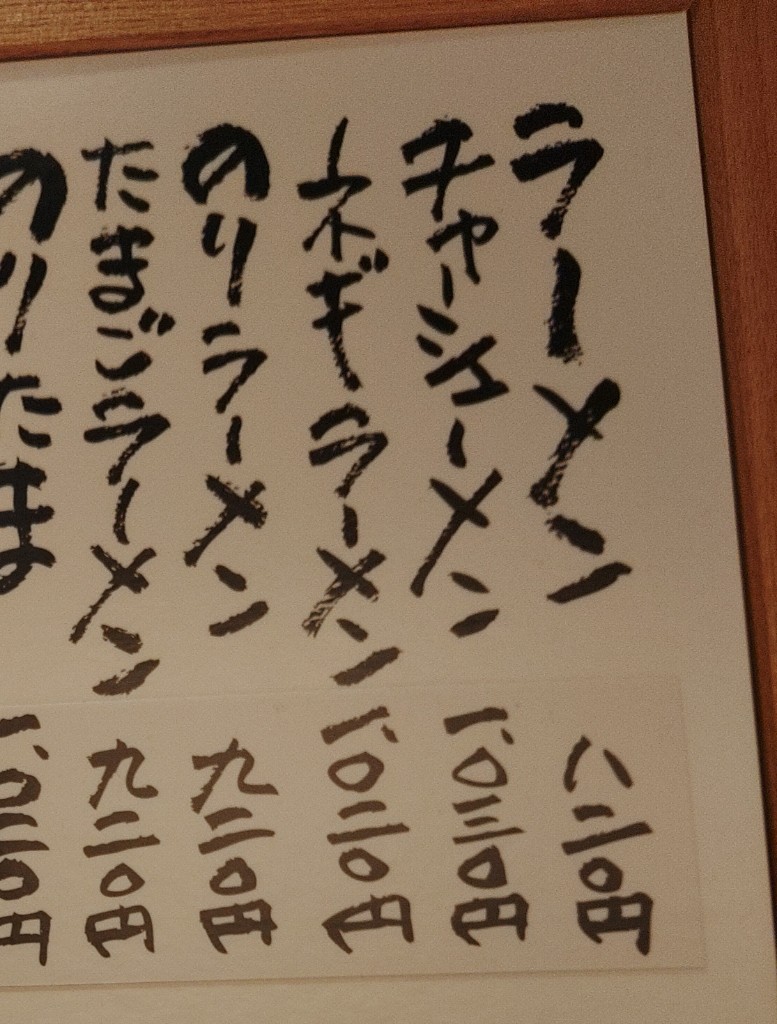 ラーメン 八二〇円
チャーシューメン 一、〇三〇円
ネギラーメン 一、〇二〇円
のりラーメン 九二〇円
たまごラーメン 九二〇円
のりたま 一、〇二〇円